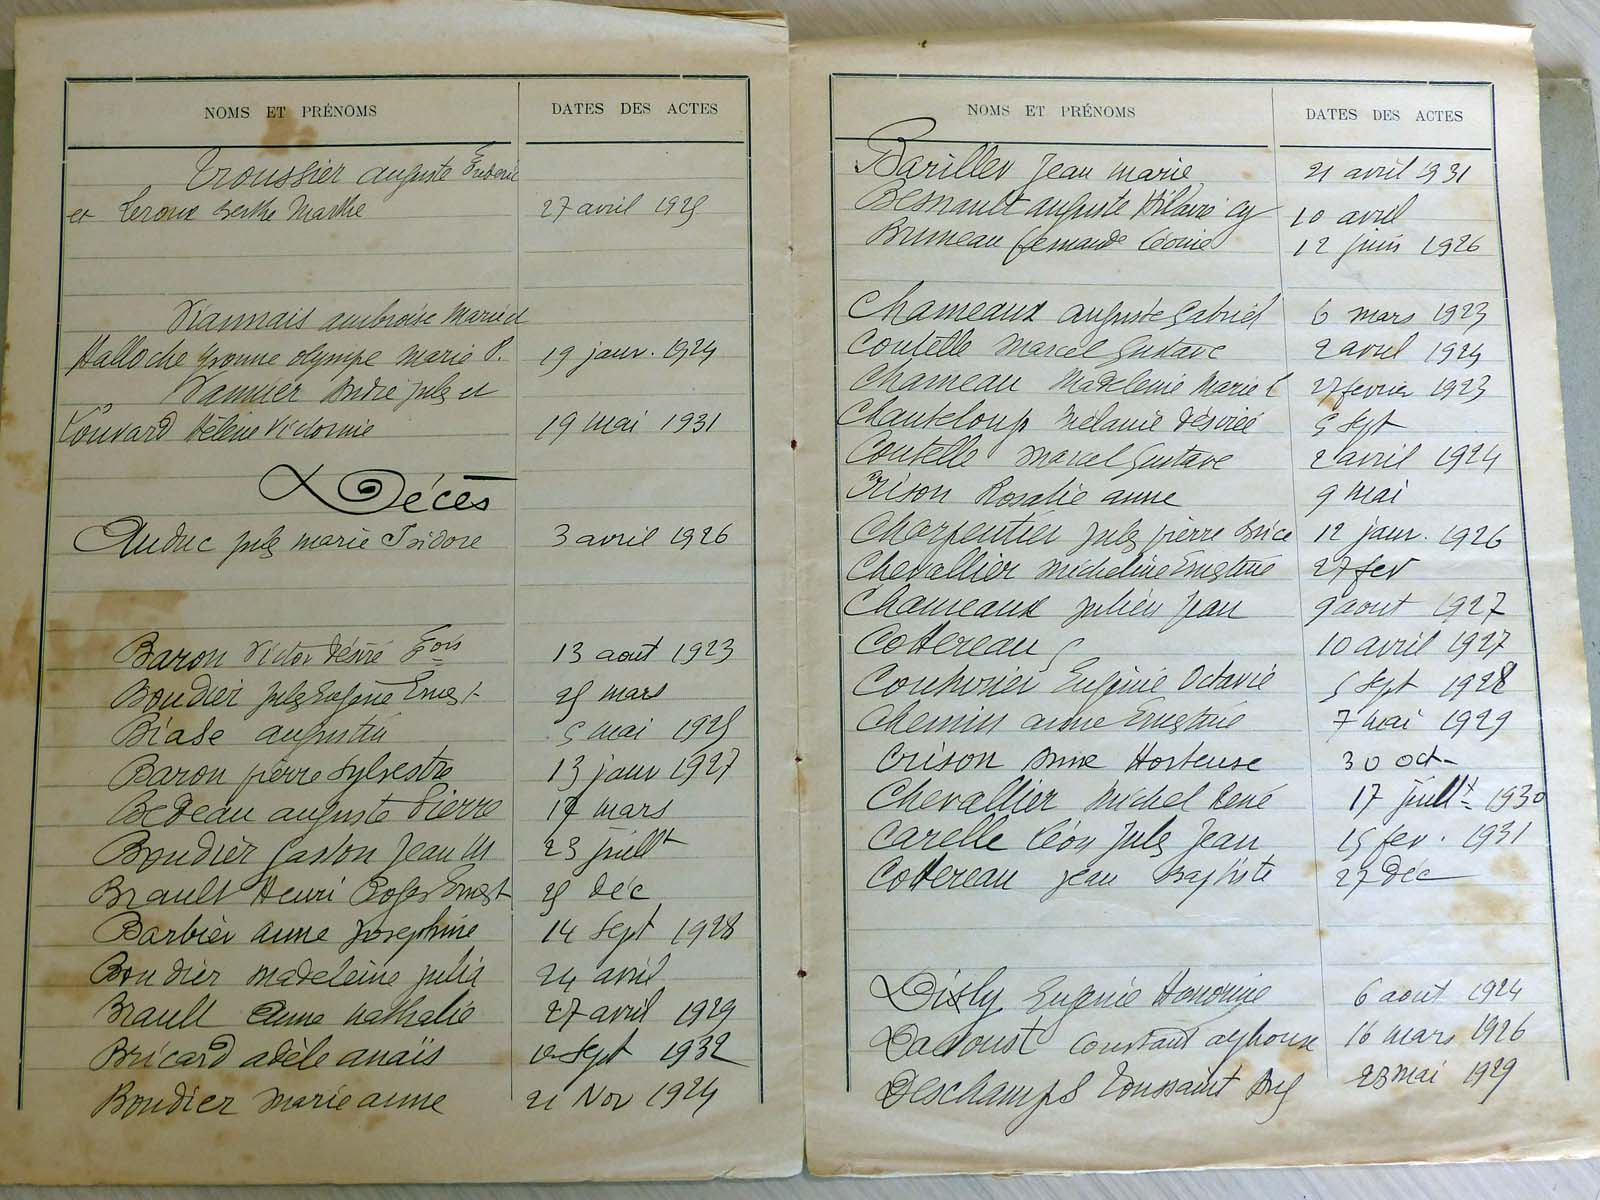 NOMS ET PRÉNOMS DATES DES ACTES
Troussier auguste Frédéric
et Leroux Berthe Marthe 27 avril 1925
Viannais ambroise Marie et
Halloche Yvonne olympe Marie P. 19 janv. 1924
Vannier André Jules et
Louvard Hélène Victorine 19 mai 1931
Décès
Auduc Jules marie Isidore 3 avril 1926
Baron Victor Désiré Fois 13 aout 1923
Boudier Jules Eugène Ernest 25 mars
Biase augustin 5 mai 1925
Baron pierre Sylvestre 13 janv 1927
Bedeau auguste Pierre 17 mars
Boudier Gaston Jean M 23 juillt
Brault Henri Roger Ernest 25 déc
Barbier anne Joséphine 14 Sept 1928
Boudier madeleine Julia 24 avril
Brault anne nathalie 27 avril 1929
Bricard adèle anaïs Sept 1932
Boudier marie anne 21 Nov 1924
NOMS ET PRÉNOMS DATES DES ACTES
Barillev Jean marie 21 avril 1931
Besnault auguste Hilaire 10 avril
Bruneau fernande Léonie 12 juin 1926
Chameaux auguste Gabriel 6 mars 1923
Coutelle Marcel Gustave 2 avril 1924
Chameau Madeleine Marie L 27 fevrier 1923
Chanteloup Mélanie Désirée 5 Sept
Coutelle Marcel Gustave 2 avril 1924
Crison Rosalie anne 9 mai
Charpentier Jules pierre Brice 12 janv. 1926
Chevallier Micheline Ernestine 27 fev
Chameaux Julien Jean 9 aout 1927
Cottereau 10 avril 1927
Couhvrier Eugénie Octavie 5 Sept 1928
Chemin anne Ernestine 7 mai 1929
Crison Anne Hortense 30 oct
Chevallier Michel René 17 juillt 1930
Carelle Léon Jules Jean 15 fev. 1931
Cottereau Jean Baptiste 27 déc
Disly Eugénie Honorine 6 aout 1924
Davoust Constant alphonse 16 mars 1926
Deschamps Toussaint Aug 28 mai 1929